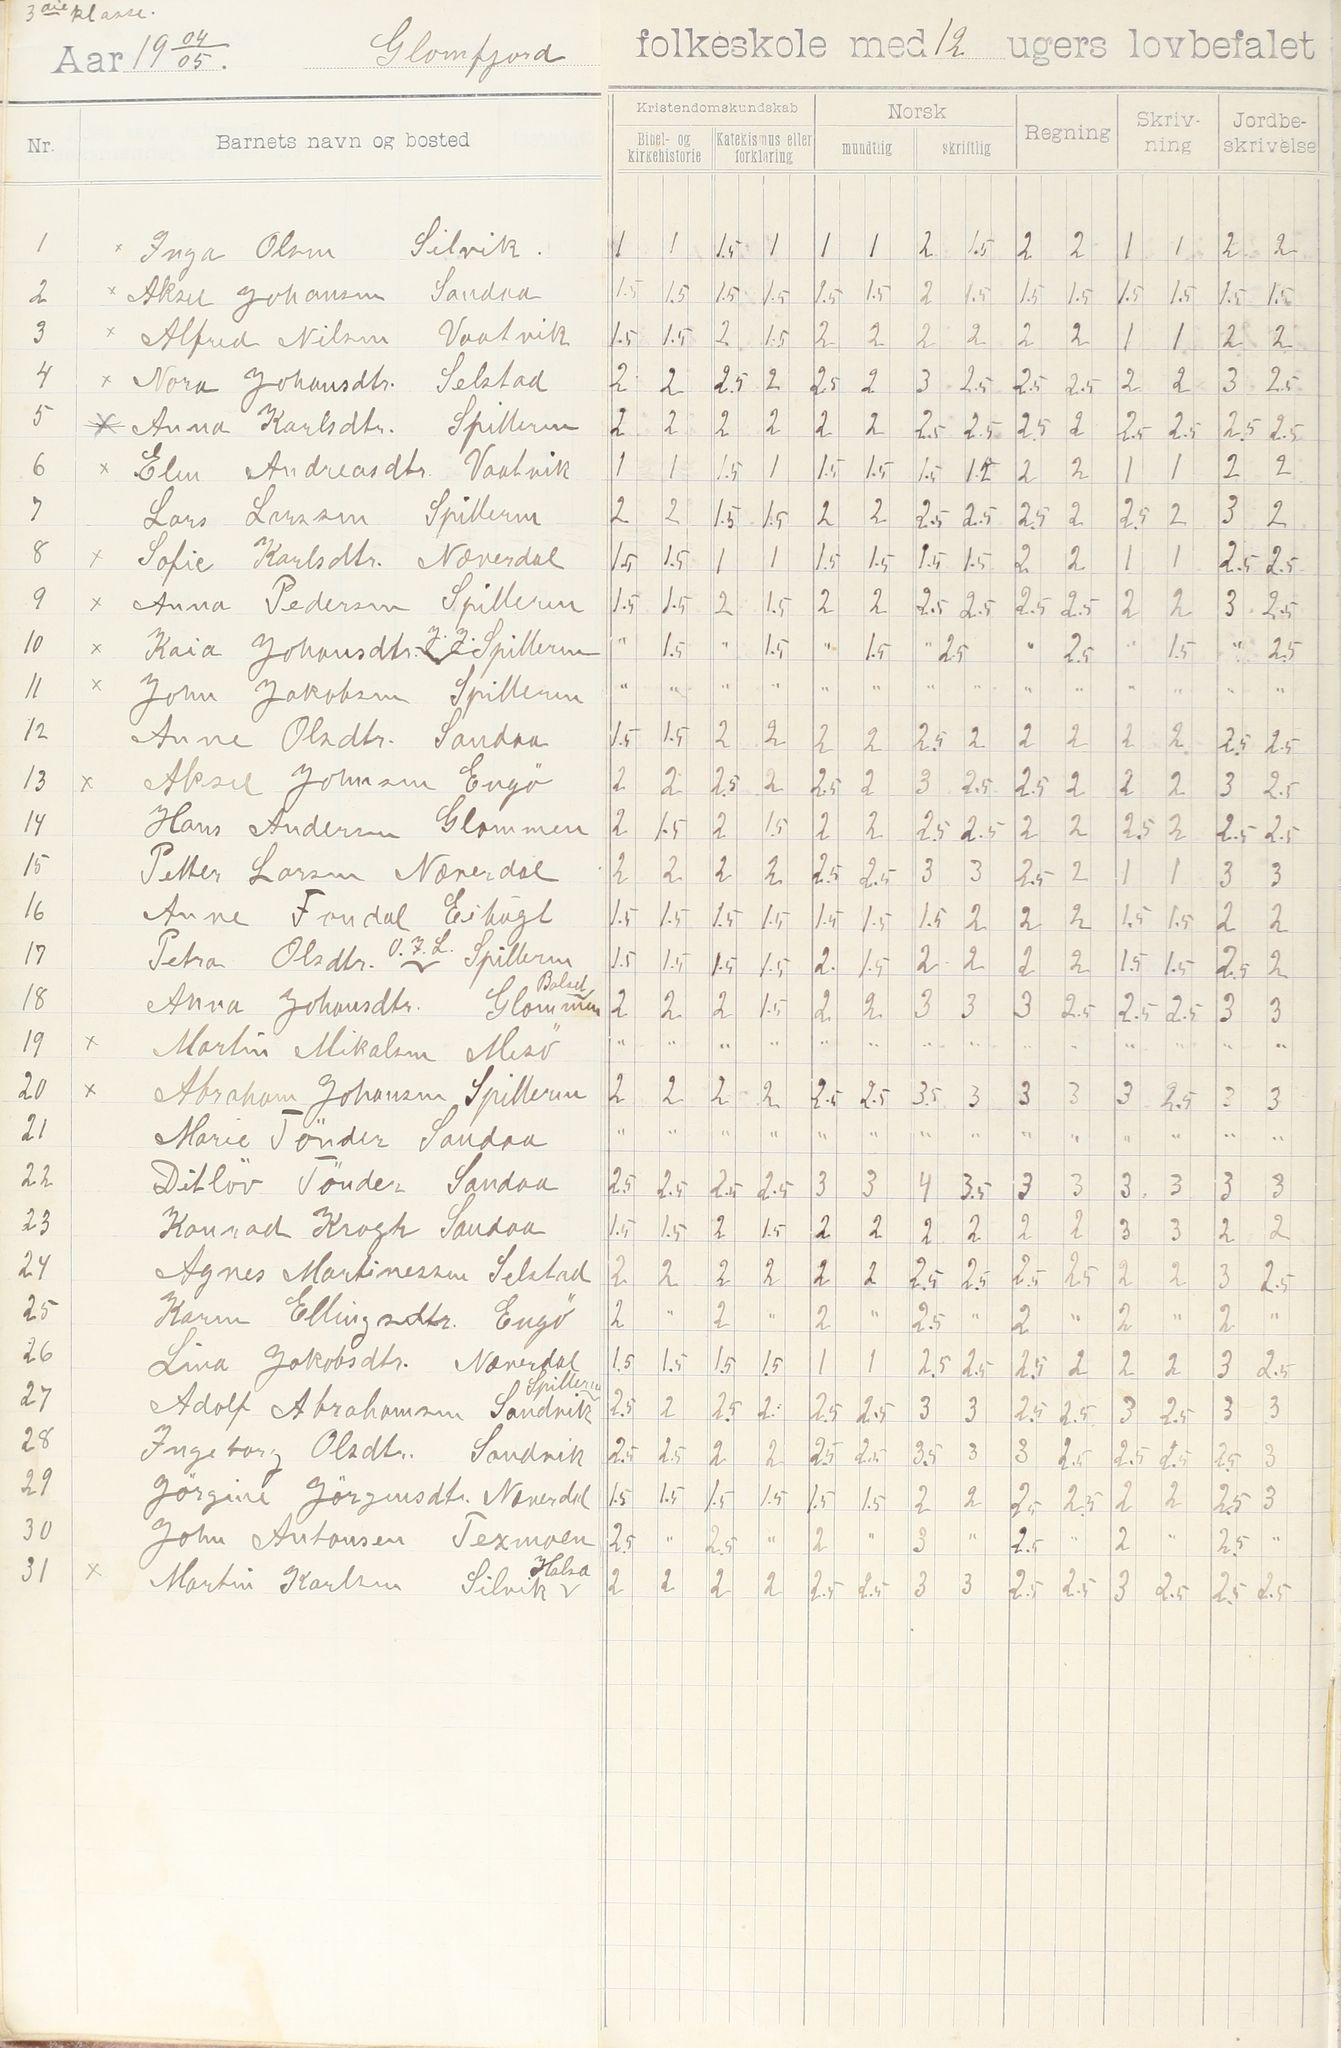 3die klasse.
Aar 19 04/05. Glomfjord folkeskole med 12 ugers lovbefalet
Kristendomskundskab Norsk
Nr. Barnets navn og bosted Bibel- og kirkehistorie Katekismus eller forklaring mundtlig skriftlig Regning Skriv-ning Jordbe-skrivelse
1 × Inga Olsen Silvik. 1 1 1.5 1 1 1 2 1.5 2 2 1 1 2 2
2 × Aksel Johansen Sandaa 1.5 1.5 1.5 1.5 1.5 1.5 2 1.5 1.5 1.5 1.5 1.5 1.5 1.5
3 × Alfred Nilsen Vaatvik 1.5 1.5 2 1.5 2 2 2 2 2 2 1 1 2 2
4 × Nora Johansdtr. Selstad 2 2 2.5 2 2.5 2 3 2.5 2.5 2.5 2 2 3 2.5
5 × Anna Karlsdtr. Spilleren 2 2 2 2 2 2 2.5 2.5 2.5 2 2.5 2.5 2.5 2.5
6 × Elen Andreasdtr. Vaatvik 1 1 1.5 1 1.5 1.5 1.5 2 2 1 1 2 2
7 Lars Larssen Spilleren 2 2 1.5 1.5 2 2 2.5 2.5 2.5 2 2.5 2 3 2
8 × Sofie Karlsdtr. Næverdal 1.5 1.5 1 1 1.5 1.5 1.5 1.5 2 2 1 1 2.5 2.5
9 × Anna Pedersen Spilleren 1.5 1.5 2 1.5 2 2 2.5 2.5 2.5 2.5 2 2 3 2.5
10 × Kaia Johansdtr. J. J. Spilleren " 1.5 " 1.5 " 1.5 " 2.5 " 2.5 " 1.5 " 2.5
11 × John Jakobsen Spilleren " " " " " " " " " " " " " "
12 Anne Olsdtr. Sandaa 1.5 1.5 2 2 2 2 2.5 2 2 2 2 2 2.5 2.5
13 × Aksel Johnsen Engö 2 2 2.5 2 2.5 2 3 2.5 2.5 2 2 2 3 2.5
14 Hans Andersen Glommen 2 1.5 2 1.5 2 2 2.5 2.5 2 2 2.5 2 2.5 2.5
15 Petter Larsen Næverdal 2 2 2 2 2.5 2.5 3 3 2.5 2 1 1 3 3
16 Anne Fondal 1.5 1.5 1.5 1.5 1.5 1.5 1.5 2 2 2 1.5 1.5 2 2
17 Petra Olsdtr. O. J. L. Spilleren 1.5 1.5 1.5 1.5 2. 1.5 2 2 2 2 1.5 1.5 2.5 2
18 Anna Johansdtr. Glommen 2 2 2 1.5 2 2 3 3 3 2.5 2.5 2.5 3 3
19 × Martin Mikalsen Mesö " " " " " " " " " " " " " "
20 × Abraham Johansen Spilleren 2 2 2 2 2.5 2.5 3.5 3 3 3 3 2.5 3 3
21 Marie Tönder Sandaa " " " " " " " " " " " " " "
22 Ditlöv Tönder Sandaa 2.5 2.5 2.5 2.5 3 3 4 3.5 3 3 3. 3 3 3
23 Konrad Krogh Sandaa 1.5 1.5 2 1.5 2 2 2 2 2 2 3 3 2 2
24 Agnes Martinessen Selstad 2 2 2 2 2 2 2.5 2.5 2.5 2.5 2 2 3 2.5
25 Karen Ellingsdtr. Engö 2 " 2 " 2 " 2.5 " 2 " 2 " 2 "
26 Lina Jakobsdtr. Næverdal 1.5 1.5 1.5 1.5 1 1 2.5 2.5 2.5 2 2 2 3 2.5
Spilleren
27 Adolf Abrahamsen Sandvik 2.5 2 2.5 2. 2.5 2.5 3 3 2.5 2.5 3 2.5 3 3
28 Ingeborg Olsdtr. Sandvik 2.5 2.5 2 2 2.5 2.5 3.5 3 3 2.5 2.5 2.5 2.5 3
29 Jörgine Jörgensdtr. Næverdal 1.5 1.5 1.5 1.5 1.5 1.5 2 2 2.5 2.5 2 2 2.5 3
30 John Antonsen Texmoen 2.5 " 2.5 " 2 " 3 " 2.5 " 2 " 2.5 "
Halsa
31 × Martin Karlsen Silvik 2 2 2 2 2.5 2.5 3 3 2.5 2.5 3 2.5 2.5 2.5